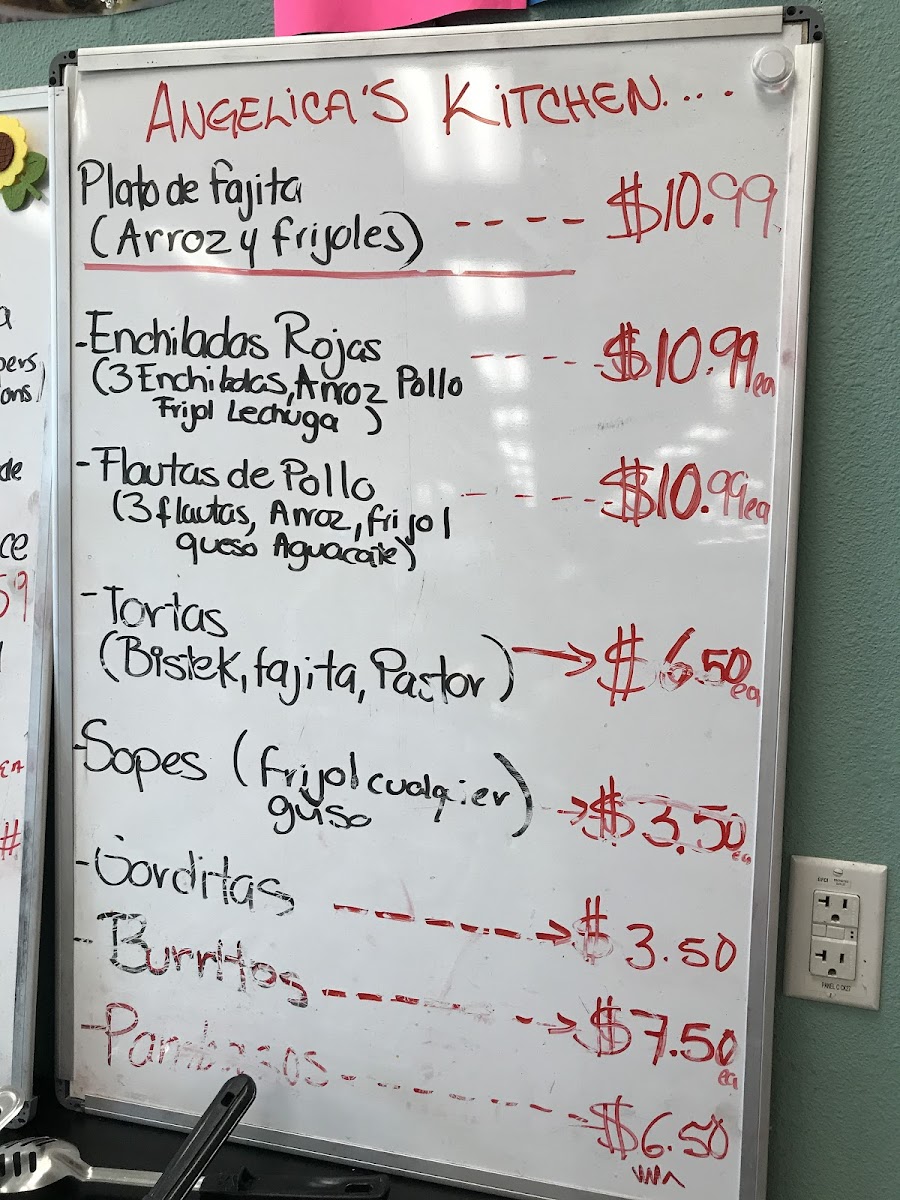 ANGELICA'S KITCHEN....
Plato de Fajita
(Arroz y frijoles) ---- $10.99
-Enchiladas Rojas ---- $10.99 ea
(3 Enchiladas, Arroz Pollo
Frijol Lechuga )
-Flautas de Pollo ---- $10.99 ea
(3 flautas, Arroz, frijol
queso Aguacate)
-Tortas
(Bistek, fajita, Pastor) → $6.50 ea
-Sopes (frijol cualqier → $3.50 ea
guiso )
-Gorditas ----→ $3.50
-Burritos ----→ $7.50 ea
-Pambasos ---- $6.50
a
pers
ons)
de
ce
59
EA
#